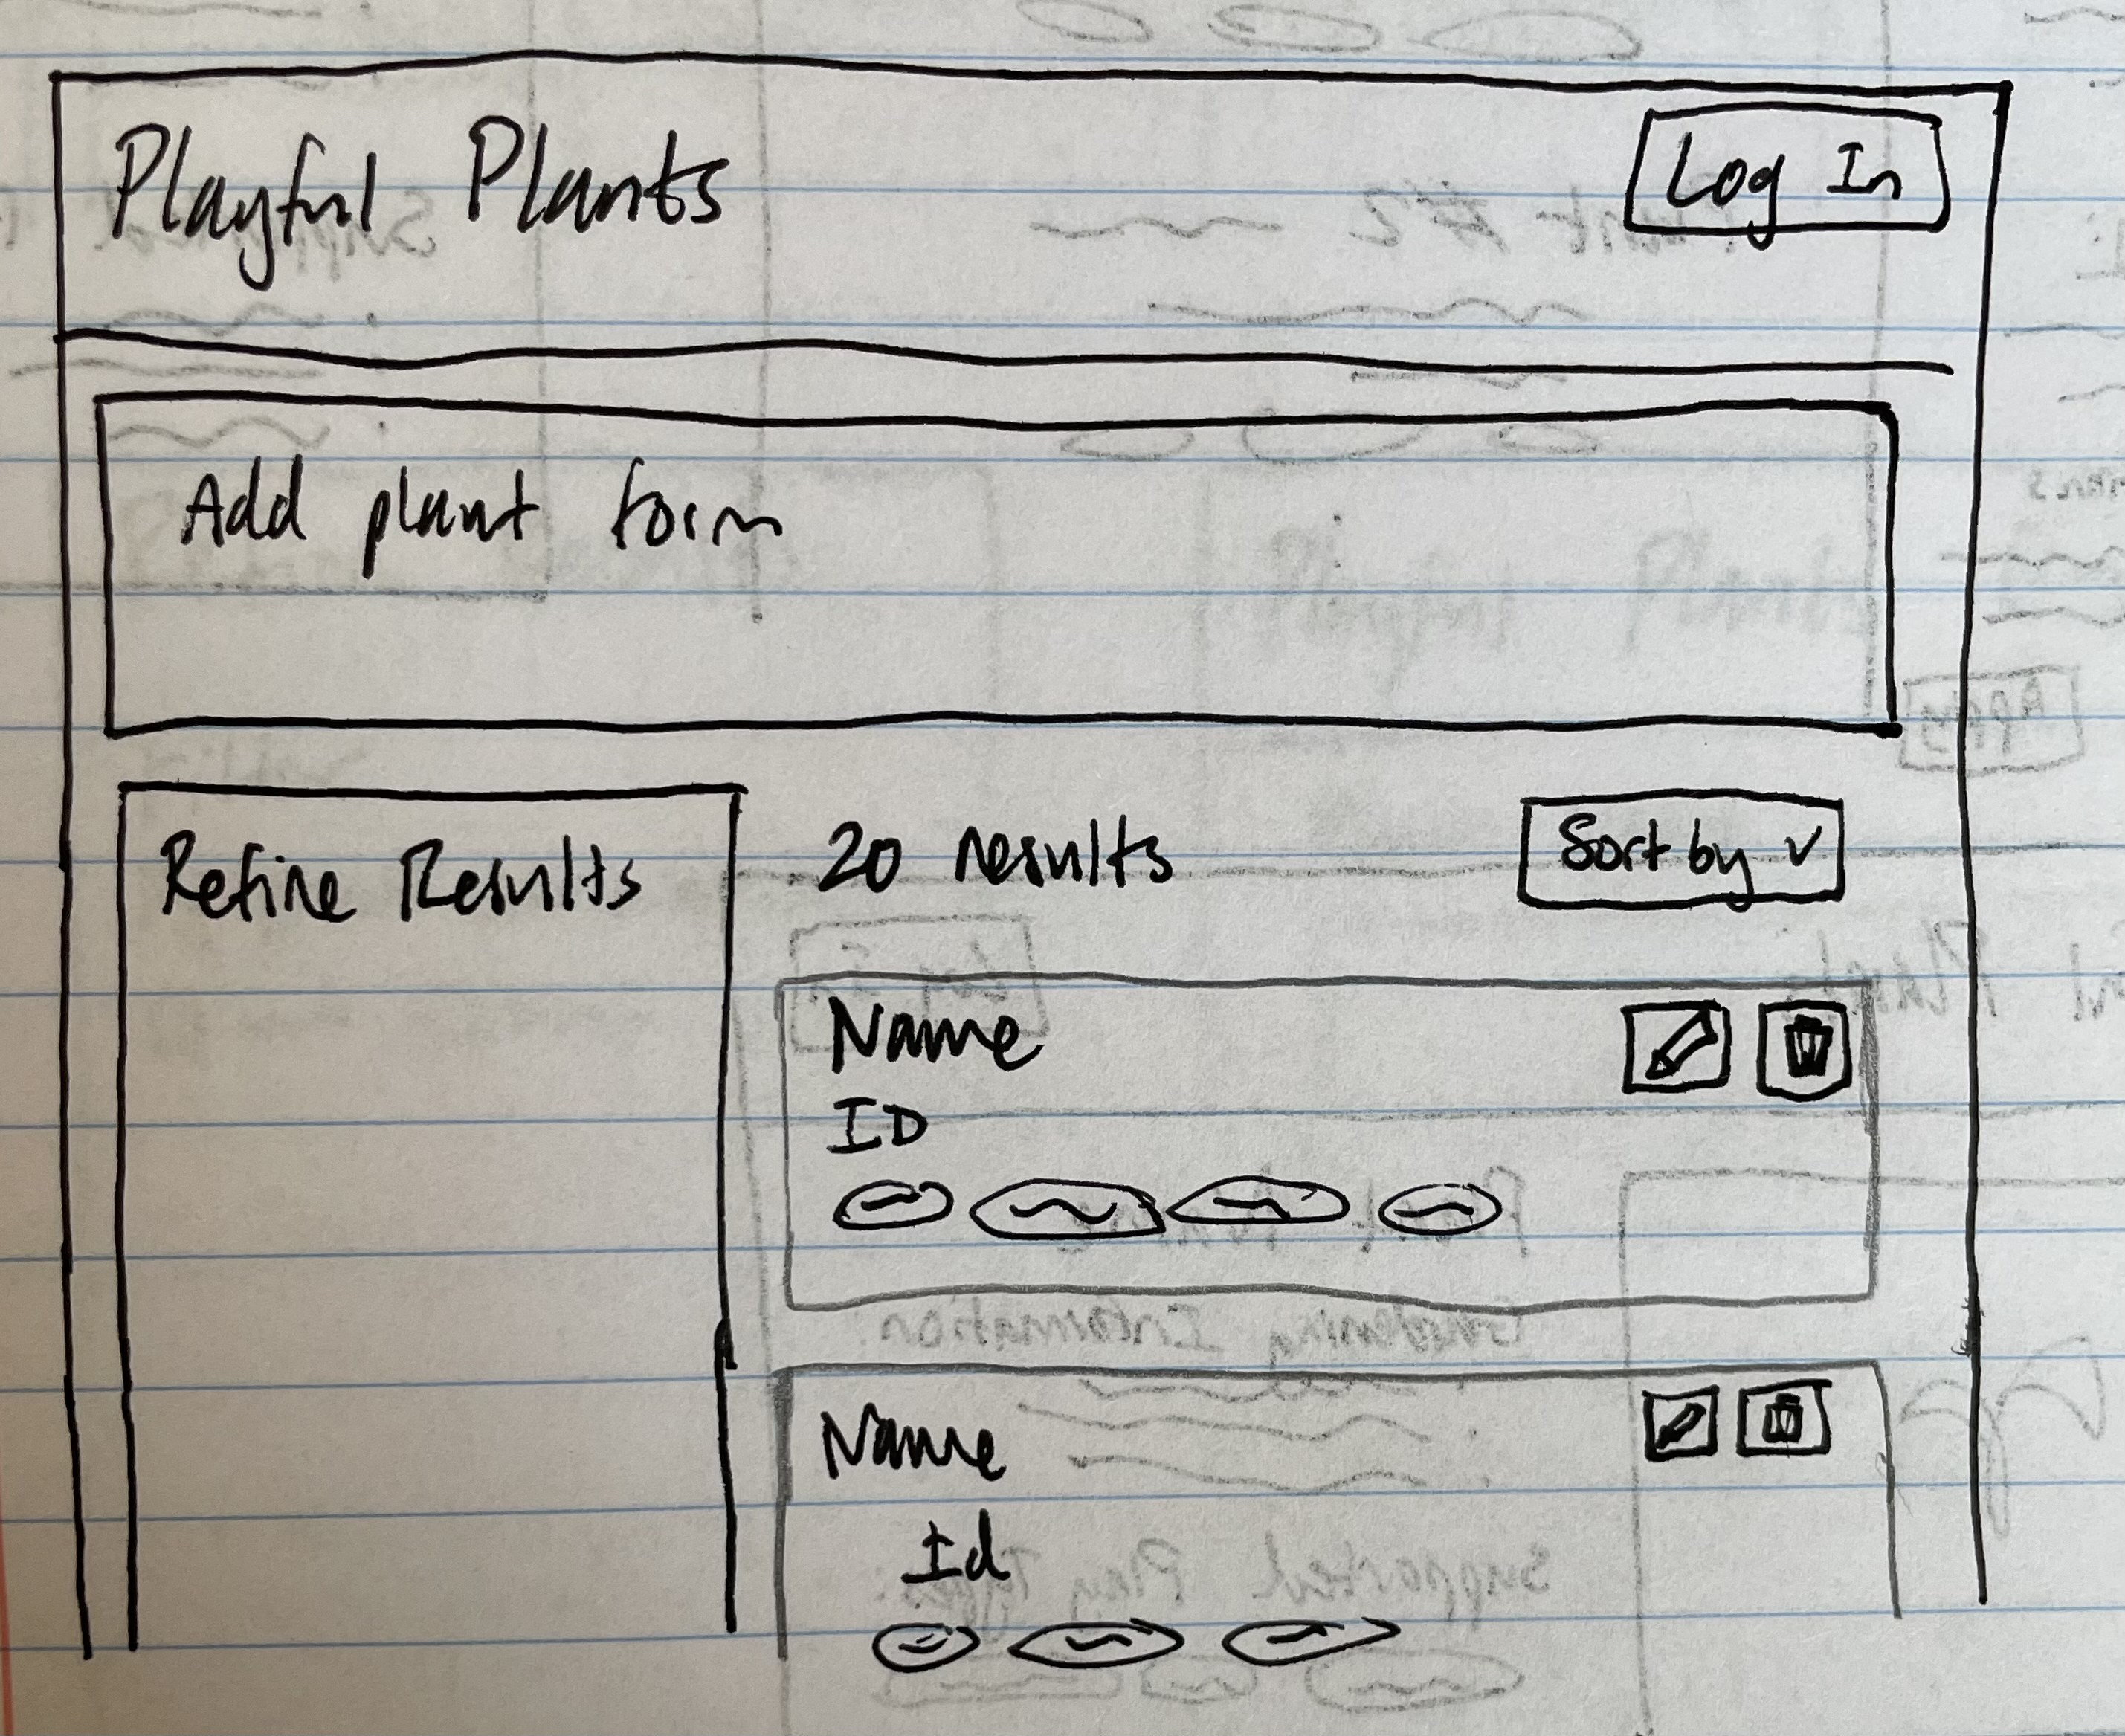 Playful Plants
Log In
Add plant form
Refine Results
20 results
Sort by
Name
ID
Name
Id